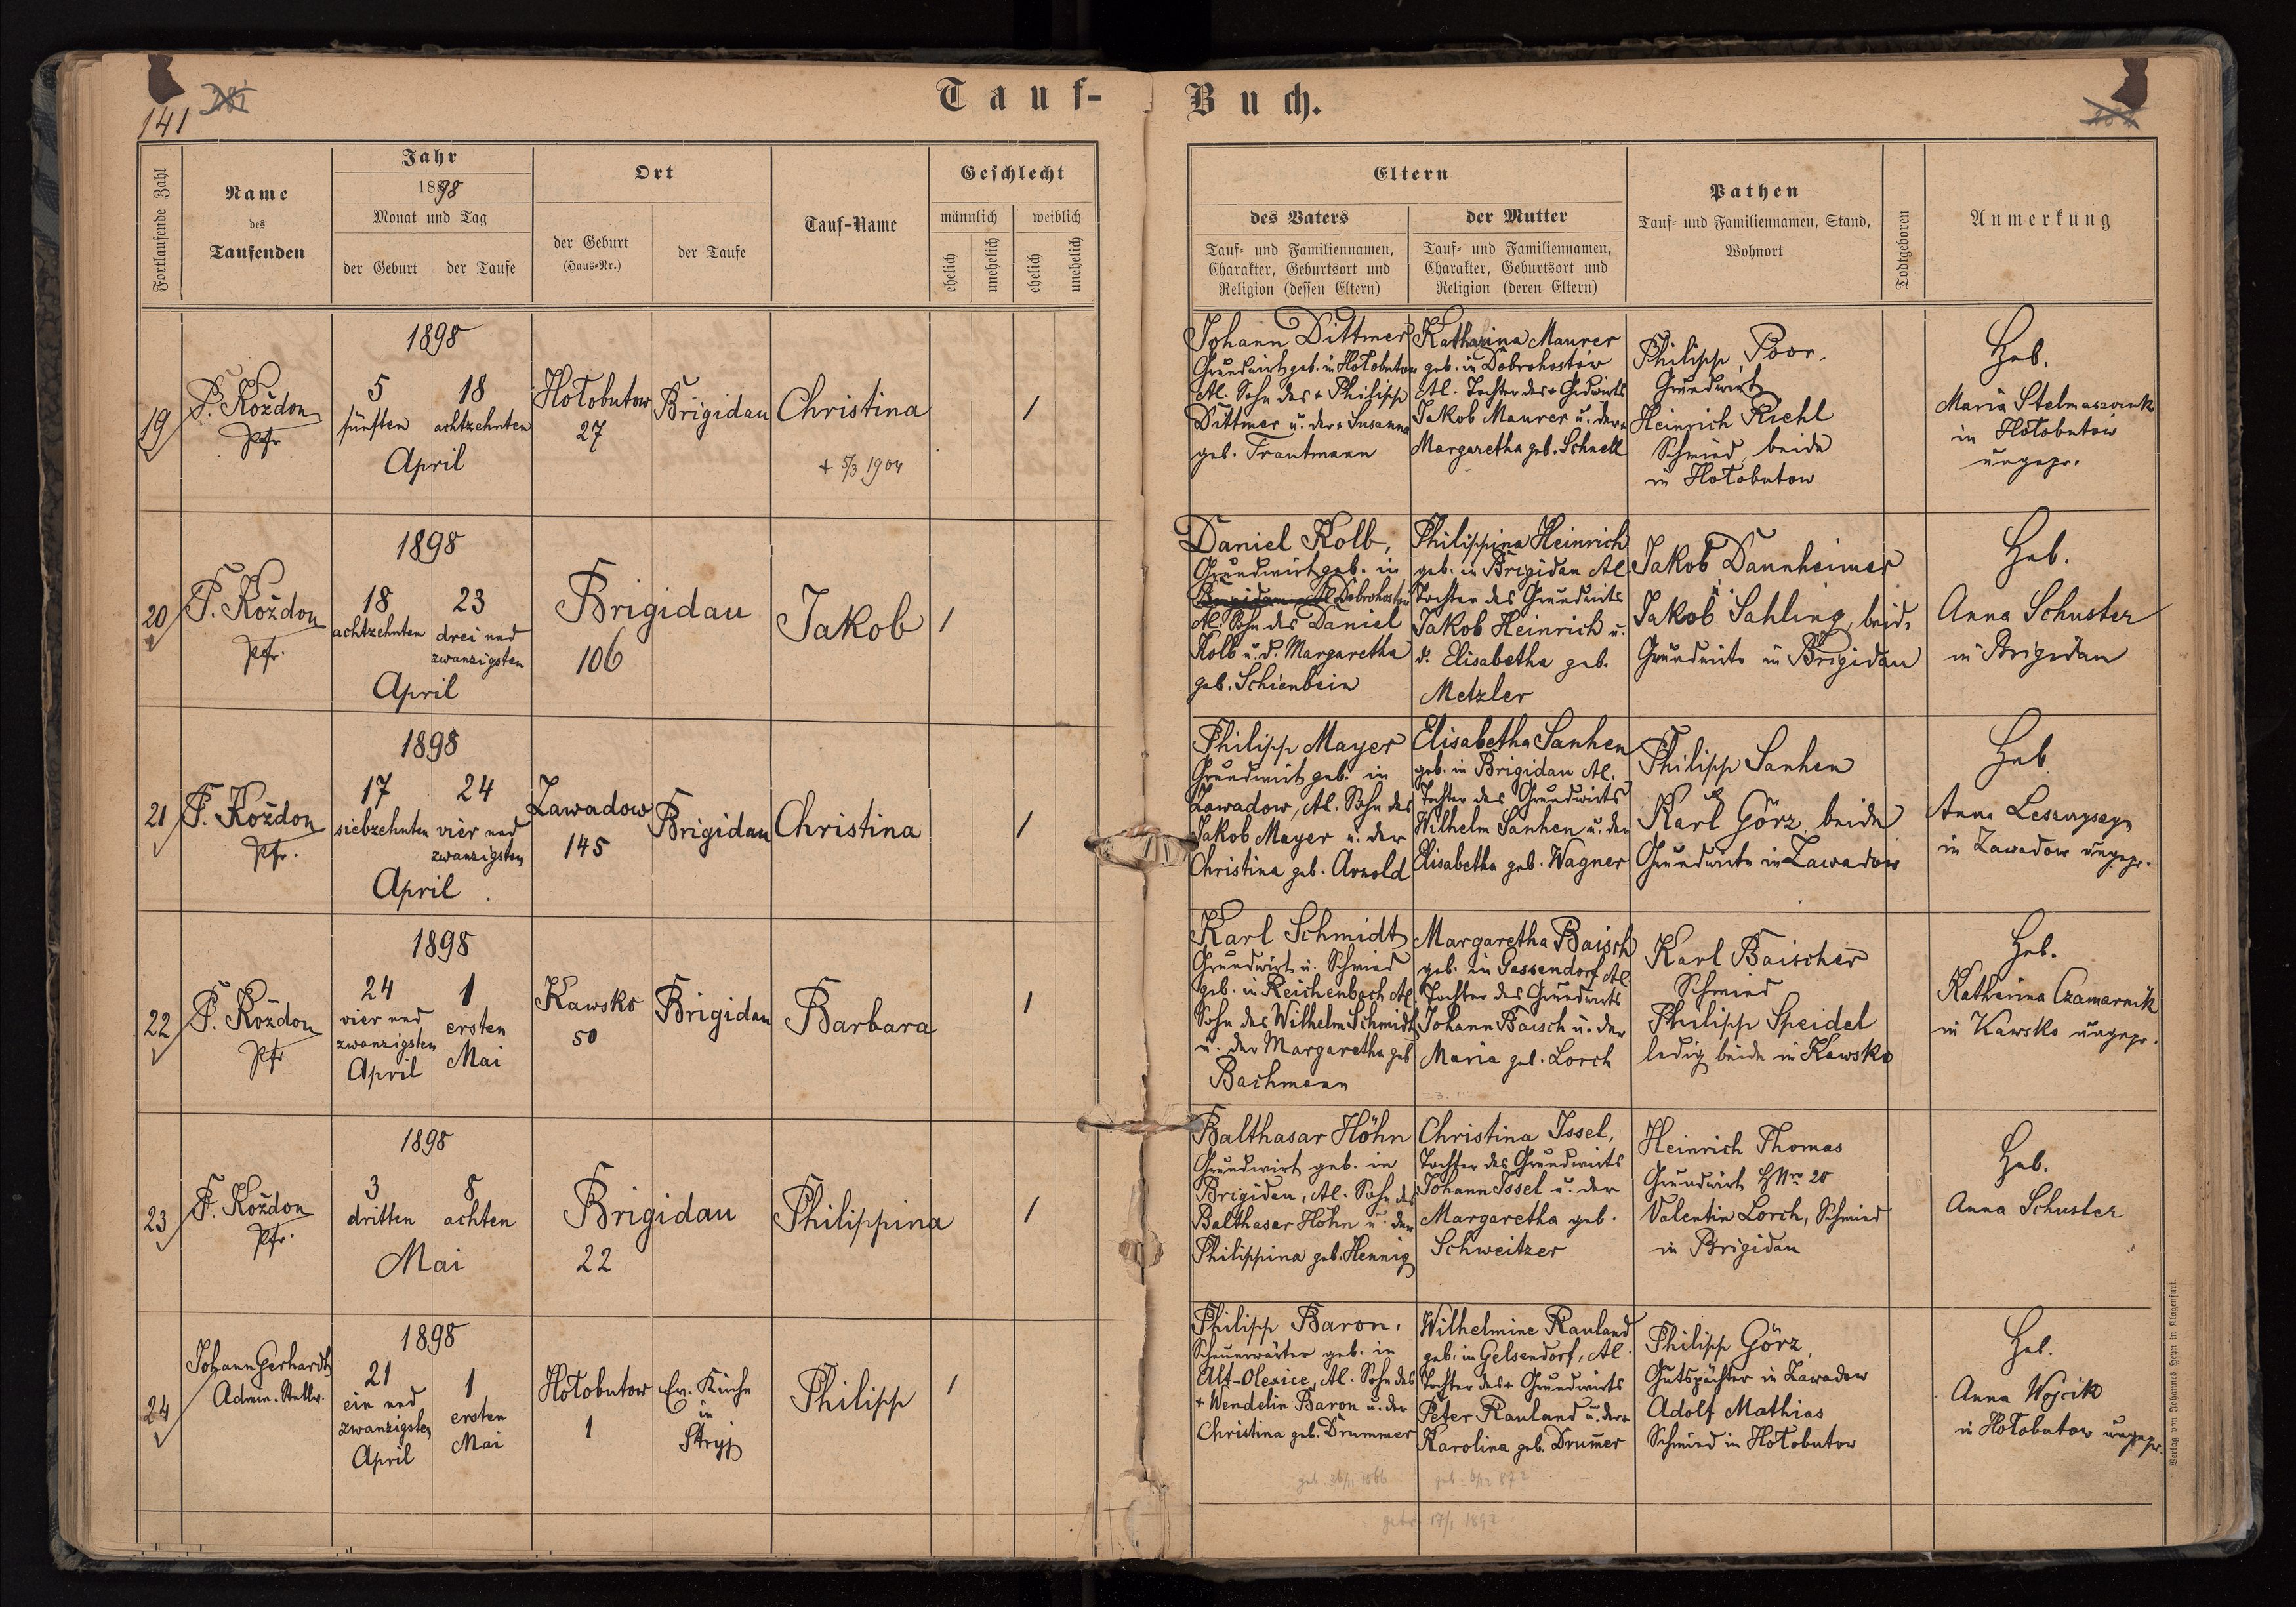 141
Tauf-Buch.
Fortlaufende Zahl
Name
des
Taufenden
Jahr
1898
Monat und Tag
der Geburt
der Taufe
Ort
der Geburt
(Haus-Nr.)
der Taufe
Tauf-Name
Geschlecht
männlich
weiblich
ehelich
unehelich
ehelich
unehelich
Eltern
des Vaters
Tauf- und Familiennamen,
Charakter, Geburtsort und
Religion (dessen Eltern)
der Mutter
Tauf- und Familiennamen,
Charakter, Geburtsort und
Religion (deren Eltern)
Pathen
Tauf- und Familiennamen, Stand,
Wohnort
Todtgeboren
Anmerkung
19
F. Koždon
Pfr
1898
5
fünften
18
achtzehnten
April
Hołobutow
27
Brigidau
Christina
+ 5/3 1904
1
Johann Dittmer
Grundwirt geb. in Hołobutow
Al. Sohn des + Philipp
Dittmer u. der + Susanna
geb. Trautmann
Katharina Maurer
geb. in Dobrohostów
Al. Tochter des + Grdwirts
Jakob Maurer u. der +
Margaretha geb. Schnell
Philipp Poor,
Grundwirt
Heinrich Riehl
Schmied, beide
in Hołobutow
Heb.
Maria
in Hołobutow
ungepr.
20
F. Koždon
Pfr.
1898
18
achtzehnten
23
drei und
zwanzigsten
April
Brigidau
106
Jakob
1
Daniel Kolb,
Grundwirt geb. in
Dobrohostow
Al. Sohn des Daniel
Kolb u. d. Margaretha
geb. Schienbein
Philippina Heinrich
geb. in Brigidau Al.
Tochter des Grundwirts
Jakob Heinrich u.
d. Elisabetha geb.
Metzler
Jakob Dannheimer
u.
Jakob Sahling, beid.
Grundwirte in Brigidau
Heb.
Anna Schuster
in Brigidau
21
F. Koždon
Pfr.
1898
17
siebzehnten
24
vier und
zwanzigsten
April.
Zawadow
145
Brigidau
Christina
1
Philipp Mayer
Grundwirt geb. in
Zawadow, Al. Sohn des
Jakob Mayer u. der
Christina geb. Arnold
Elisabetha Sanhen
geb. in Brigidau Al.
Tochter des Grundwirts
Wilhelm Sanhen u. der
Elisabetha geb. Wagner
Philipp Sanhen
u.
Karl Görz, beide
Grundwirte in Zawadow
Heb
Anna
in Zawadow ungepr.
22
F. Koždon
Pfr
1898
24
vier und
zwanzigsten
April
1
ersten
Mai
Kawsko
50
Brigidau
Barbara
1
Karl Schmidt
Grundwirt u. Schmied
geb. in Reichenbach Al.
Sohn des Wilhelm Schmidt
u. der Margaretha geb.
Bachmann
Margaretha Baisch
geb. in Gassendorf Al.
Tochter des Grundwirts
Johann Baisch u. der
Maria geb. Lorch
Karl Baischer
Schmied
Philipp Speidel
ledig beide in Kawsko
Heb.
Katharina Czamarnik
in Kawsko ungepr.
23
F. Koždon
Pfr.
1898
3
dritten
8
achten
Mai
Brigidau
22
Philippina
1
Balthasar Höhn
Grundwirt geb. in
Brigidau, Al. Sohn des
Balthasar Höhn u. der
Philippina geb. Hennig
Christina Issel,
Tochter des Grundwirts
Johann Issel u. der
Margaretha geb.
Schweitzer
Heinrich Thomas
Grundwirt HNro 20
Valentin Lorch, Schmied
in Brigidau
Heb.
Anna Schuster
24
Johann Gerhardt
Admin. Stellv.
1898
21
ein und
zwanzigsten
April
1
ersten
Mai
Hołobutow
1
Ev. Kirche
in
Stryj
Philipp
1
Philipp Baron,
Scheuerwärter geb. in
Alt-Olexice, Al. Sohn des
+ Wendelin Baron u. der
Christina geb. Drummer
geb. 26/11 1866
Wilhelmine Rauland
geb. in Gelsendorf, Al.
Tochter des + Grundwirts
Peter Rauland u. der +
Karolina geb. Drum̅er
geb. 6/12 872
getr. 17/1 1892
Philipp Görz,
Gutspächter in Zawadow
Adolf Mathias
Schmied in Hołobutow
Heb.
Anna Wojcik
in Hołobutow ungepr.
Verlag von Johannes Heyn in Klagenfurt.